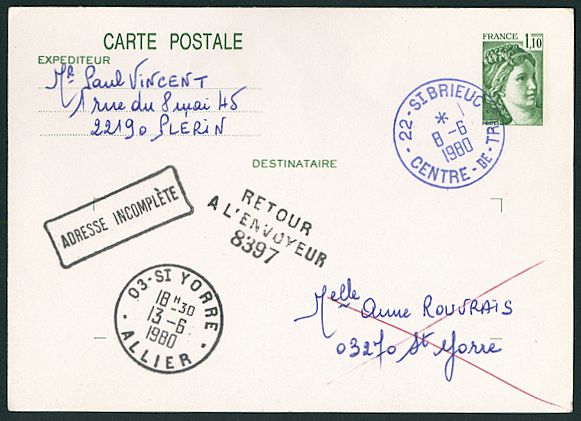 CARTE POSTALE
EXPEDITEUR
Mr Paul VINCENT
1 rue du 8 mai 45
22190 PLERIN
FRANCE
1,10
22 - ST BRIEUC
* 1
8 - 6
1980
CENTRE - DE - TR
DESTINATAIRE
ADRESSE INCOMPLÈTE
RETOUR
A L'ENVOYEUR
8397
03 - ST YORRE
18 H 30
13 - 6
1980
ALLIER
Melle Anne ROUVRAIS
03270 St Yorre